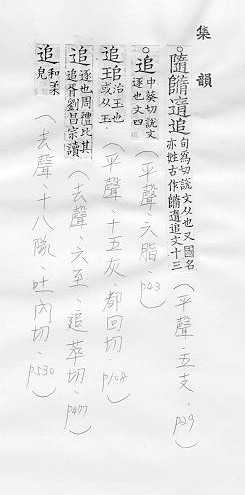 集韻
○隨䭉遀追 旬爲切說文从也又國名亦姓古作䭉遀追文十三 (平聲．五支．p29)
○追 中葵切說文逐也文四 (平聲．六脂．p43)
追𤤷 治玉也或从玉 (平聲．十五灰．都回切．p108)
追 逐也周禮比其追胥劉昌宗讀 (去聲．六至．追萃切．p477)
追 和柔皃 (去聲．十八隊．吐內切．p530)